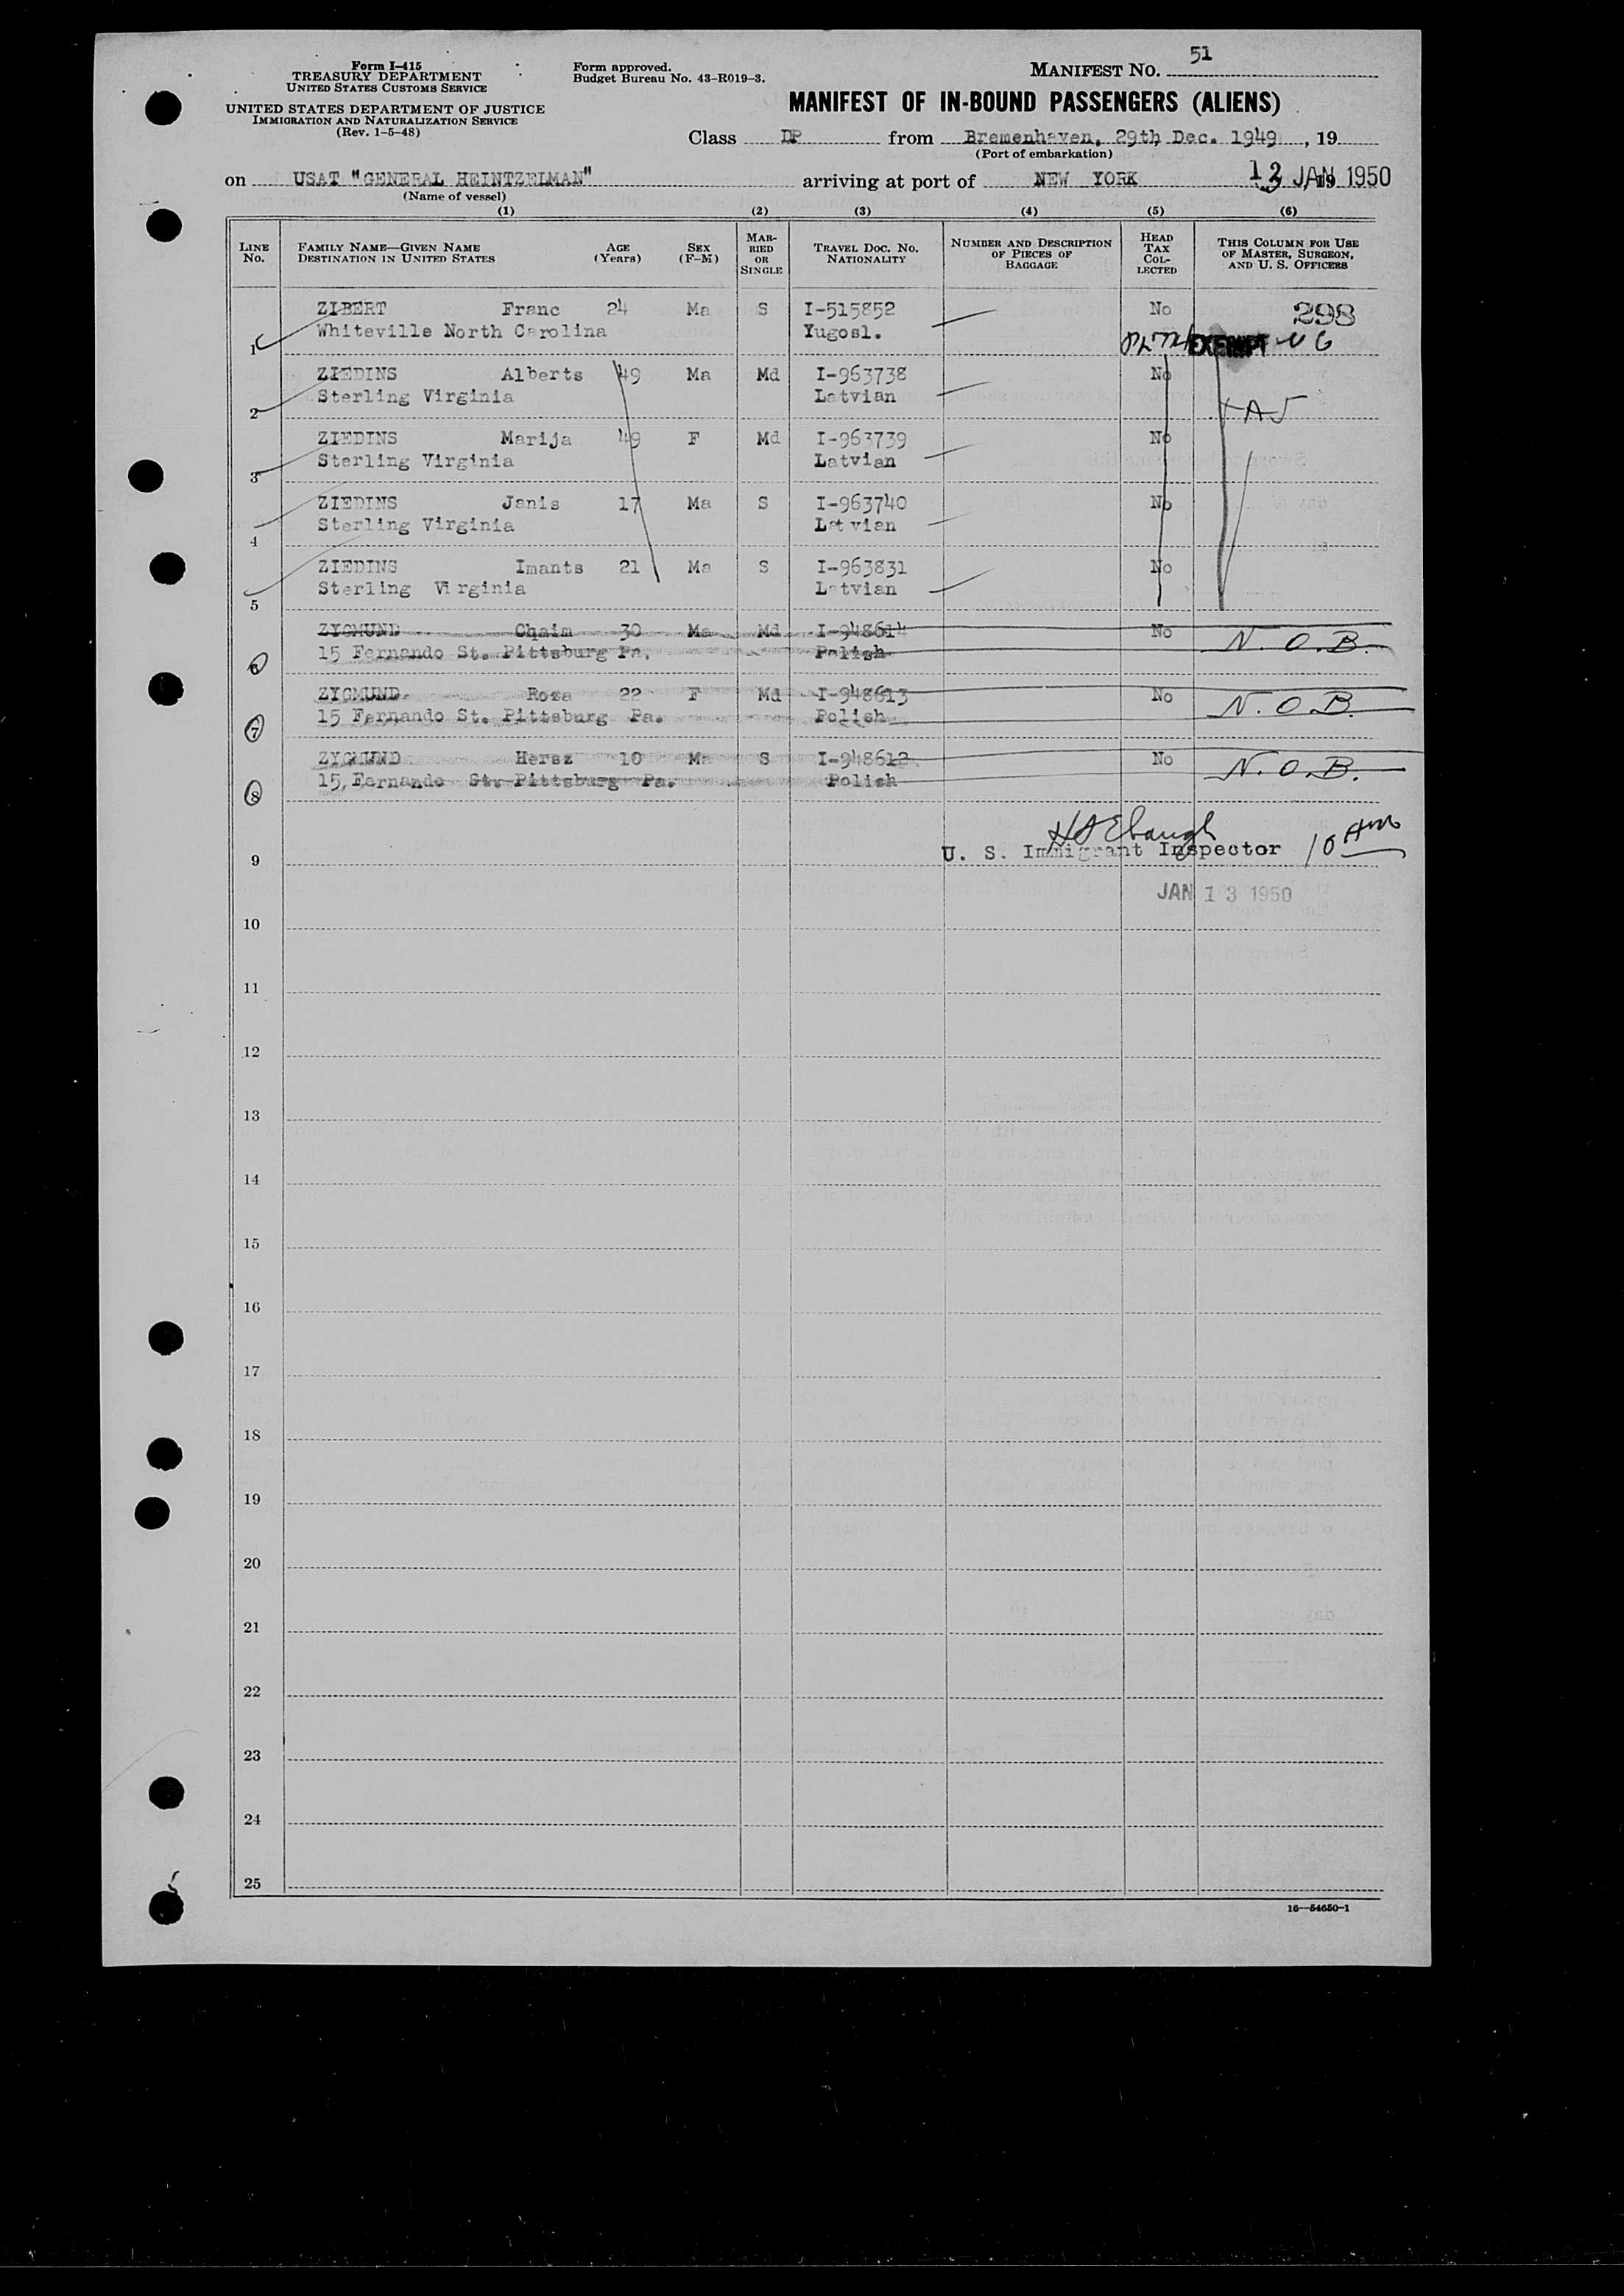 51
Form I-415
TREASURY DEPARTMENT
UNITED STATES CUSTOMS SERVICE
UNITED STATES DEPARTMENT OF JUSTICE
IMMIGRATION AND NATURALIZATION SERVICE
(Rev. 1-5-48)
Form approved.
Budget Bureau No. 43-R019-3.
MANIFEST NO.
MANIFEST OF IN-BOUND PASSENGERS (ALIENS)
Class DP from Bremenhaven, 29th Dec. 1949, 19
(Port of embarkation)
on USAT "GENERAL HEINTZELMAN" arriving at port of NEW YORK 13 JAN 1950, 19
(Name of vessel)
(1) (2) (3) (4) (5) (6)
LINE NO. FAMILY NAME—GIVEN NAME DESTINATION IN UNITED STATES AGE (Years) SEX (F-M) MARRIED OR SINGLE TRAVEL DOC. NO. NATIONALITY NUMBER AND DESCRIPTION OF PIECES OF BAGGAGE HEAD TAX COLLECTED THIS COLUMN FOR USE OF MASTER, SURGEON, AND U. S. OFFICERS
ZIBERT Franc 24 Ma S I-515852 No 298
1 Whiteville North Carolina Yugosl. EXEMPT
ZIEDINS Alberts 49 Ma Md I-963738 No
2 Sterling Virginia Latvian
ZIEDINS Marija 49 F Md I-963739 No
3 Sterling Virginia Latvian
ZIEDINS Janis 17 Ma S I-963740 No
4 Sterling Virginia Latvian
ZIEDINS Imants 21 Ma S I-963831 No
5 Sterling Virginia Latvian
ZYGMUND Chaim 30 Ma Md I-948614 No N.O.B.
6 15 Fernando St. Pittsburg Pa. Polish
ZYGMUND Roza 22 F Md I-948613 No N.O.B.
7 15 Fernando St. Pittsburg Pa. Polish
ZYGMUND Hersz 10 Ma S I-948612 No N.O.B.
8 15, Fernando St. Pittsburg Pa. Polish
9 U. S. Immigrant Inspector 10 Am
JAN 13 1950
10
11
12
13
14
15
16
17
18
19
20
21
22
23
24
25
16—54650-1